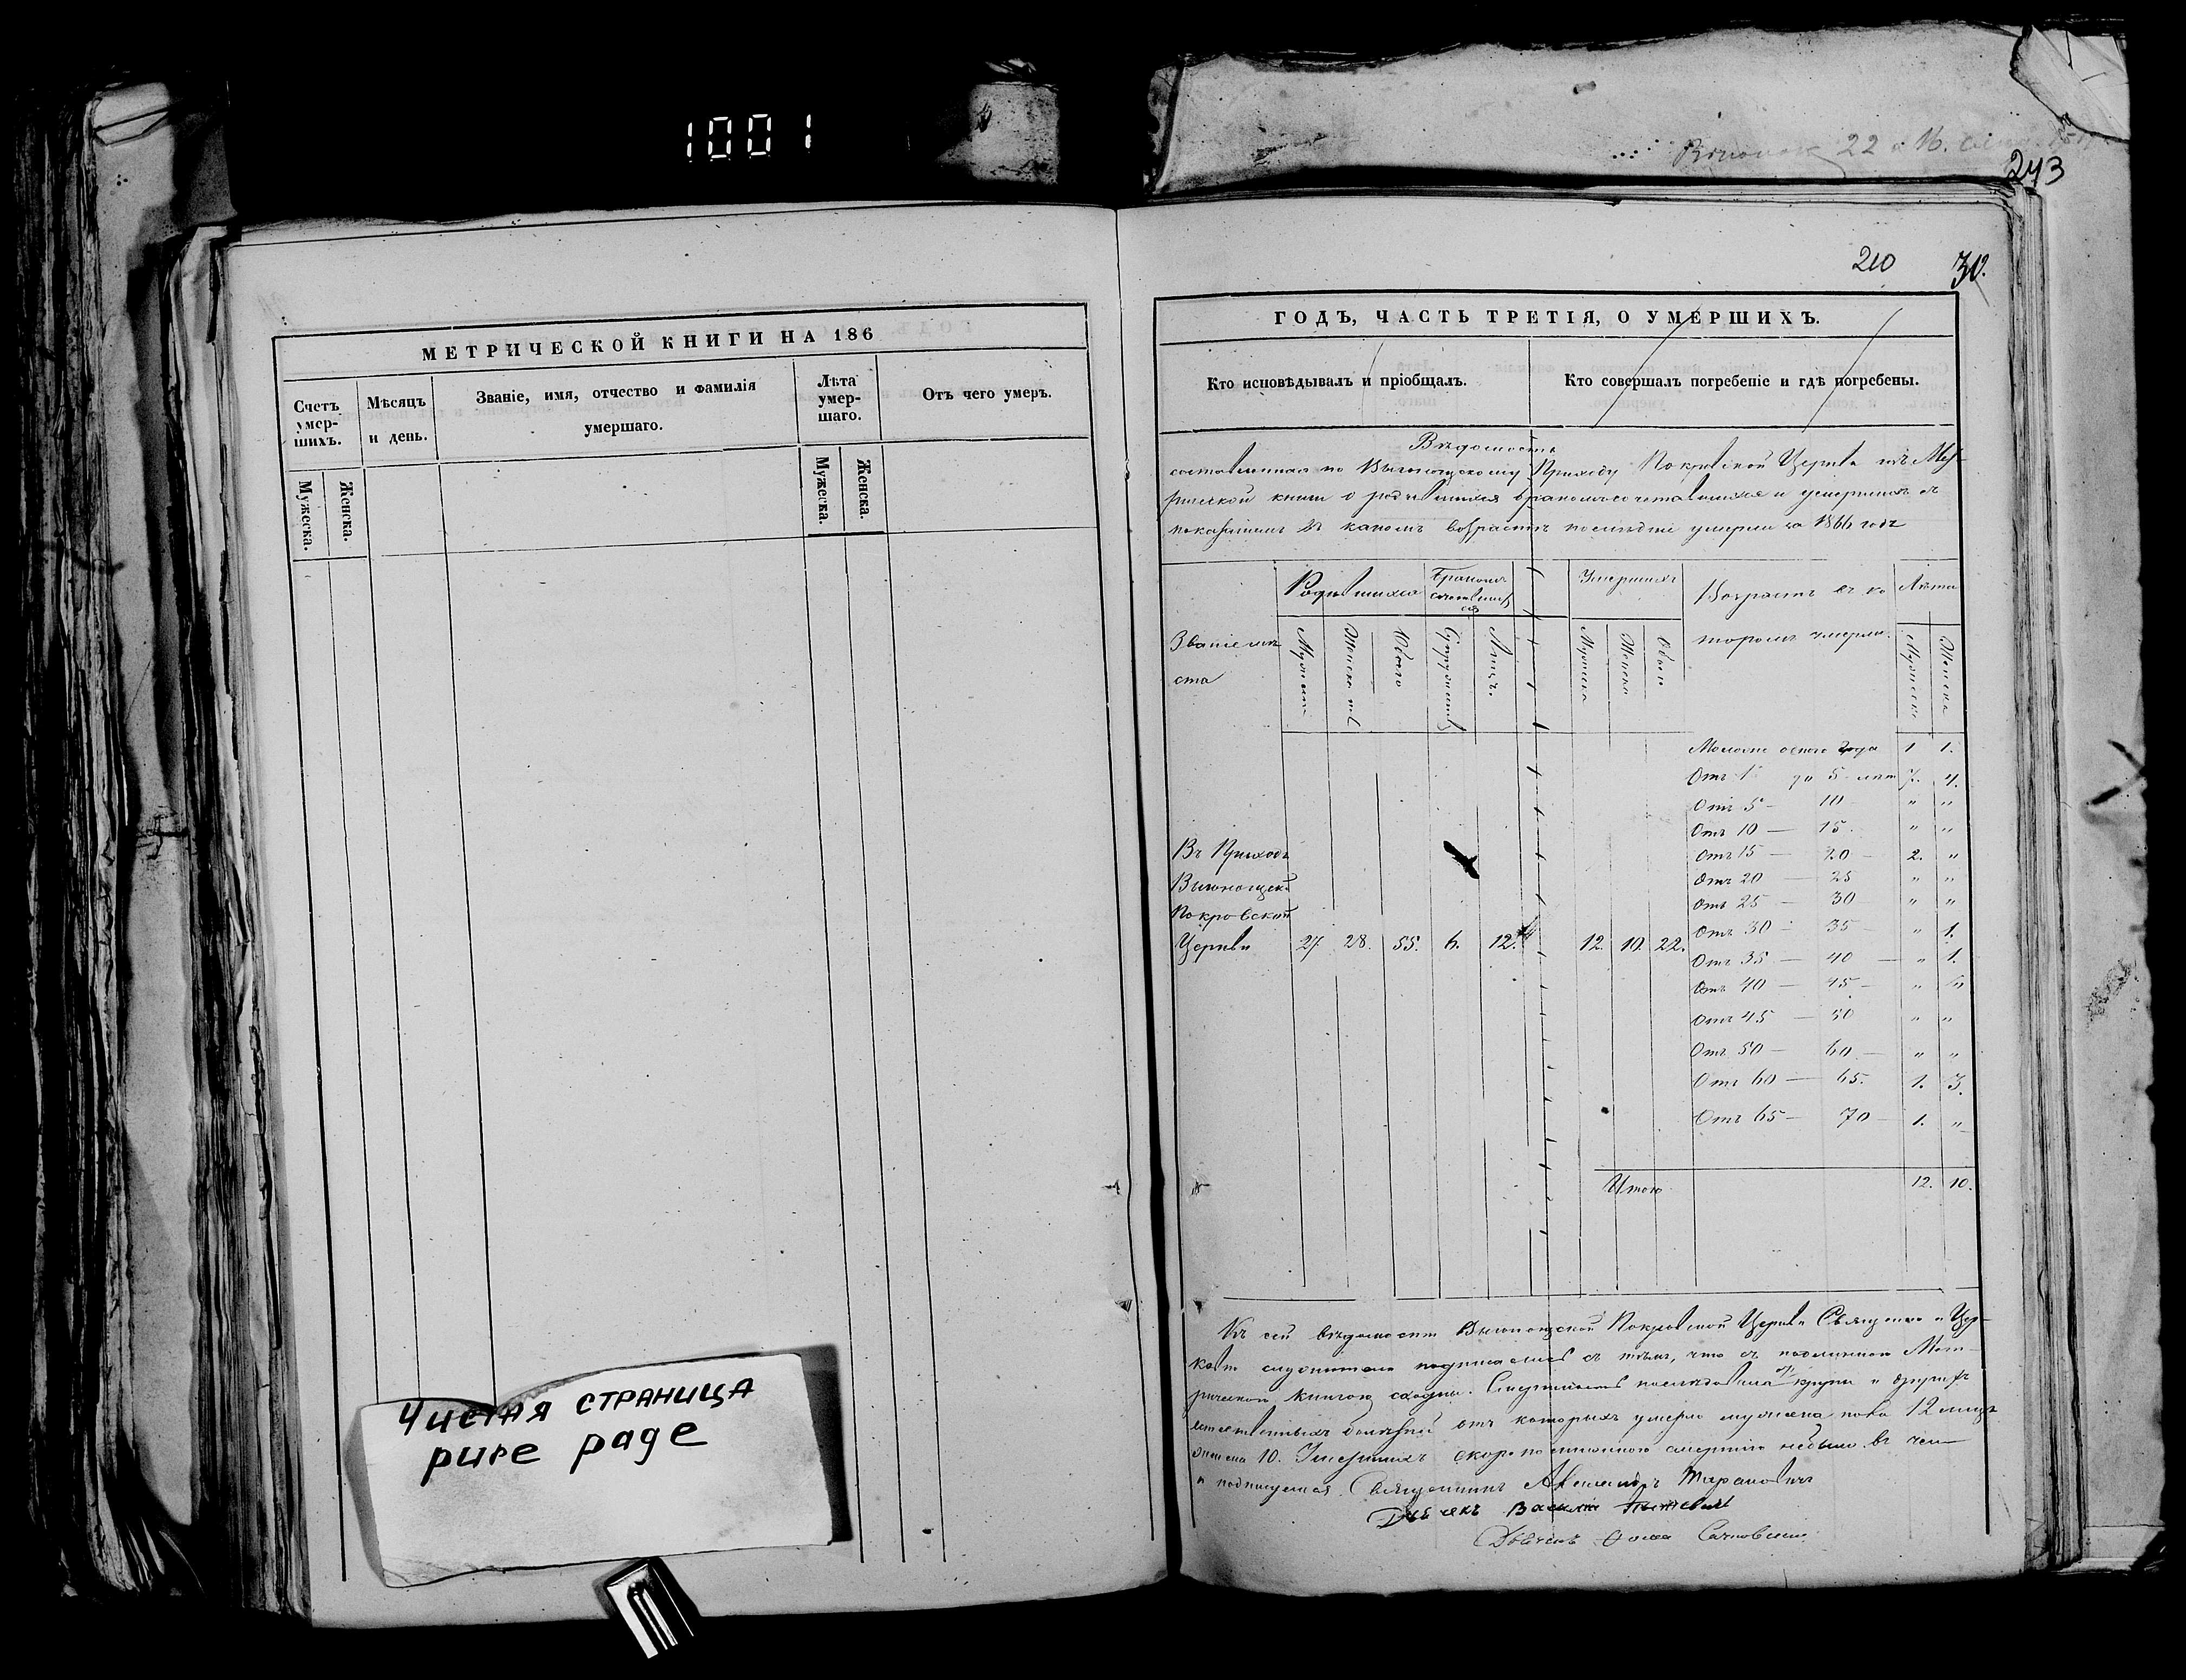 1001
22
16
243
МЕТРИЧЕСКОЙ КНИГИ НА 186
Счетъ умер-шихъ.
Мѣсяцъ и день.
Званіе, имя, отчество и фамилія умершаго.
Лѣта умер-шаго.
Отъ чего умеръ.
Мужеска.
Женска.
Мужеска.
Женска.
Чистая страница
pure page
210
ГОДЪ, ЧАСТЬ ТРЕТІЯ, О УМЕРШИХЪ.
Кто исповѣдывалъ и пріобщалъ.
Кто совершалъ погребеніе и гдѣ погребены.
Вѣдомость
составленная по Приходу Покровской Церкви изъ Мет-
рической книги о родившихся бракомъ сочетавшихся и умершихъ съ
показаніемъ въ какомъ возрастѣ послѣдніе умерли за 1866 годъ
Родившихся
Умершихъ
Возрастъ въ ко
Лѣта
Званіе мѣ
ста
Мужеска
Женска
Обоего
Супружествъ
Лицъ.
Мужеска
Женска
Обоего
торомъ умерли.
Мужеска
Женска
Моложе одного года 1 1.
Отъ 1 до 5 лѣт 7. 4.
Отъ 5 — 10 " "
Отъ 10 — 15. " "
Отъ 15 — 20 — 2. "
Отъ 20 — 25 " "
Отъ 25 — 30 " "
Отъ 30 — 35 " 1.
Отъ 35 — 40 — " 1.
Отъ 40 — 45 — " "
Отъ 45 — 50 " "
Отъ 50 — 60 — " "
Отъ 60 — 65. 1. 3.
Отъ 65 — 70 — 1. "
Въ Приходѣ
Покровской
Церкви 27 28. 55. 6. 12. 12. 10. 22.
Итого 12. 10.
Къ сей вѣдомости Покровской Церкви Священно и Цер-
ковно служители подписались съ тѣмъ, что съ подлинною Мет-
рическою Книгою сходны. Смертность послѣдовала отъ крупа и другихъ
болѣзней отъ которыхъ умерло мужеска пола 12 лицъ
женска 10. Умершихъ скоропостижною смертію небыло. въ чем
и подписуемся Священникъ Александръ Тарановичъ
Дьячекъ Василій
Дьячекъ Фома